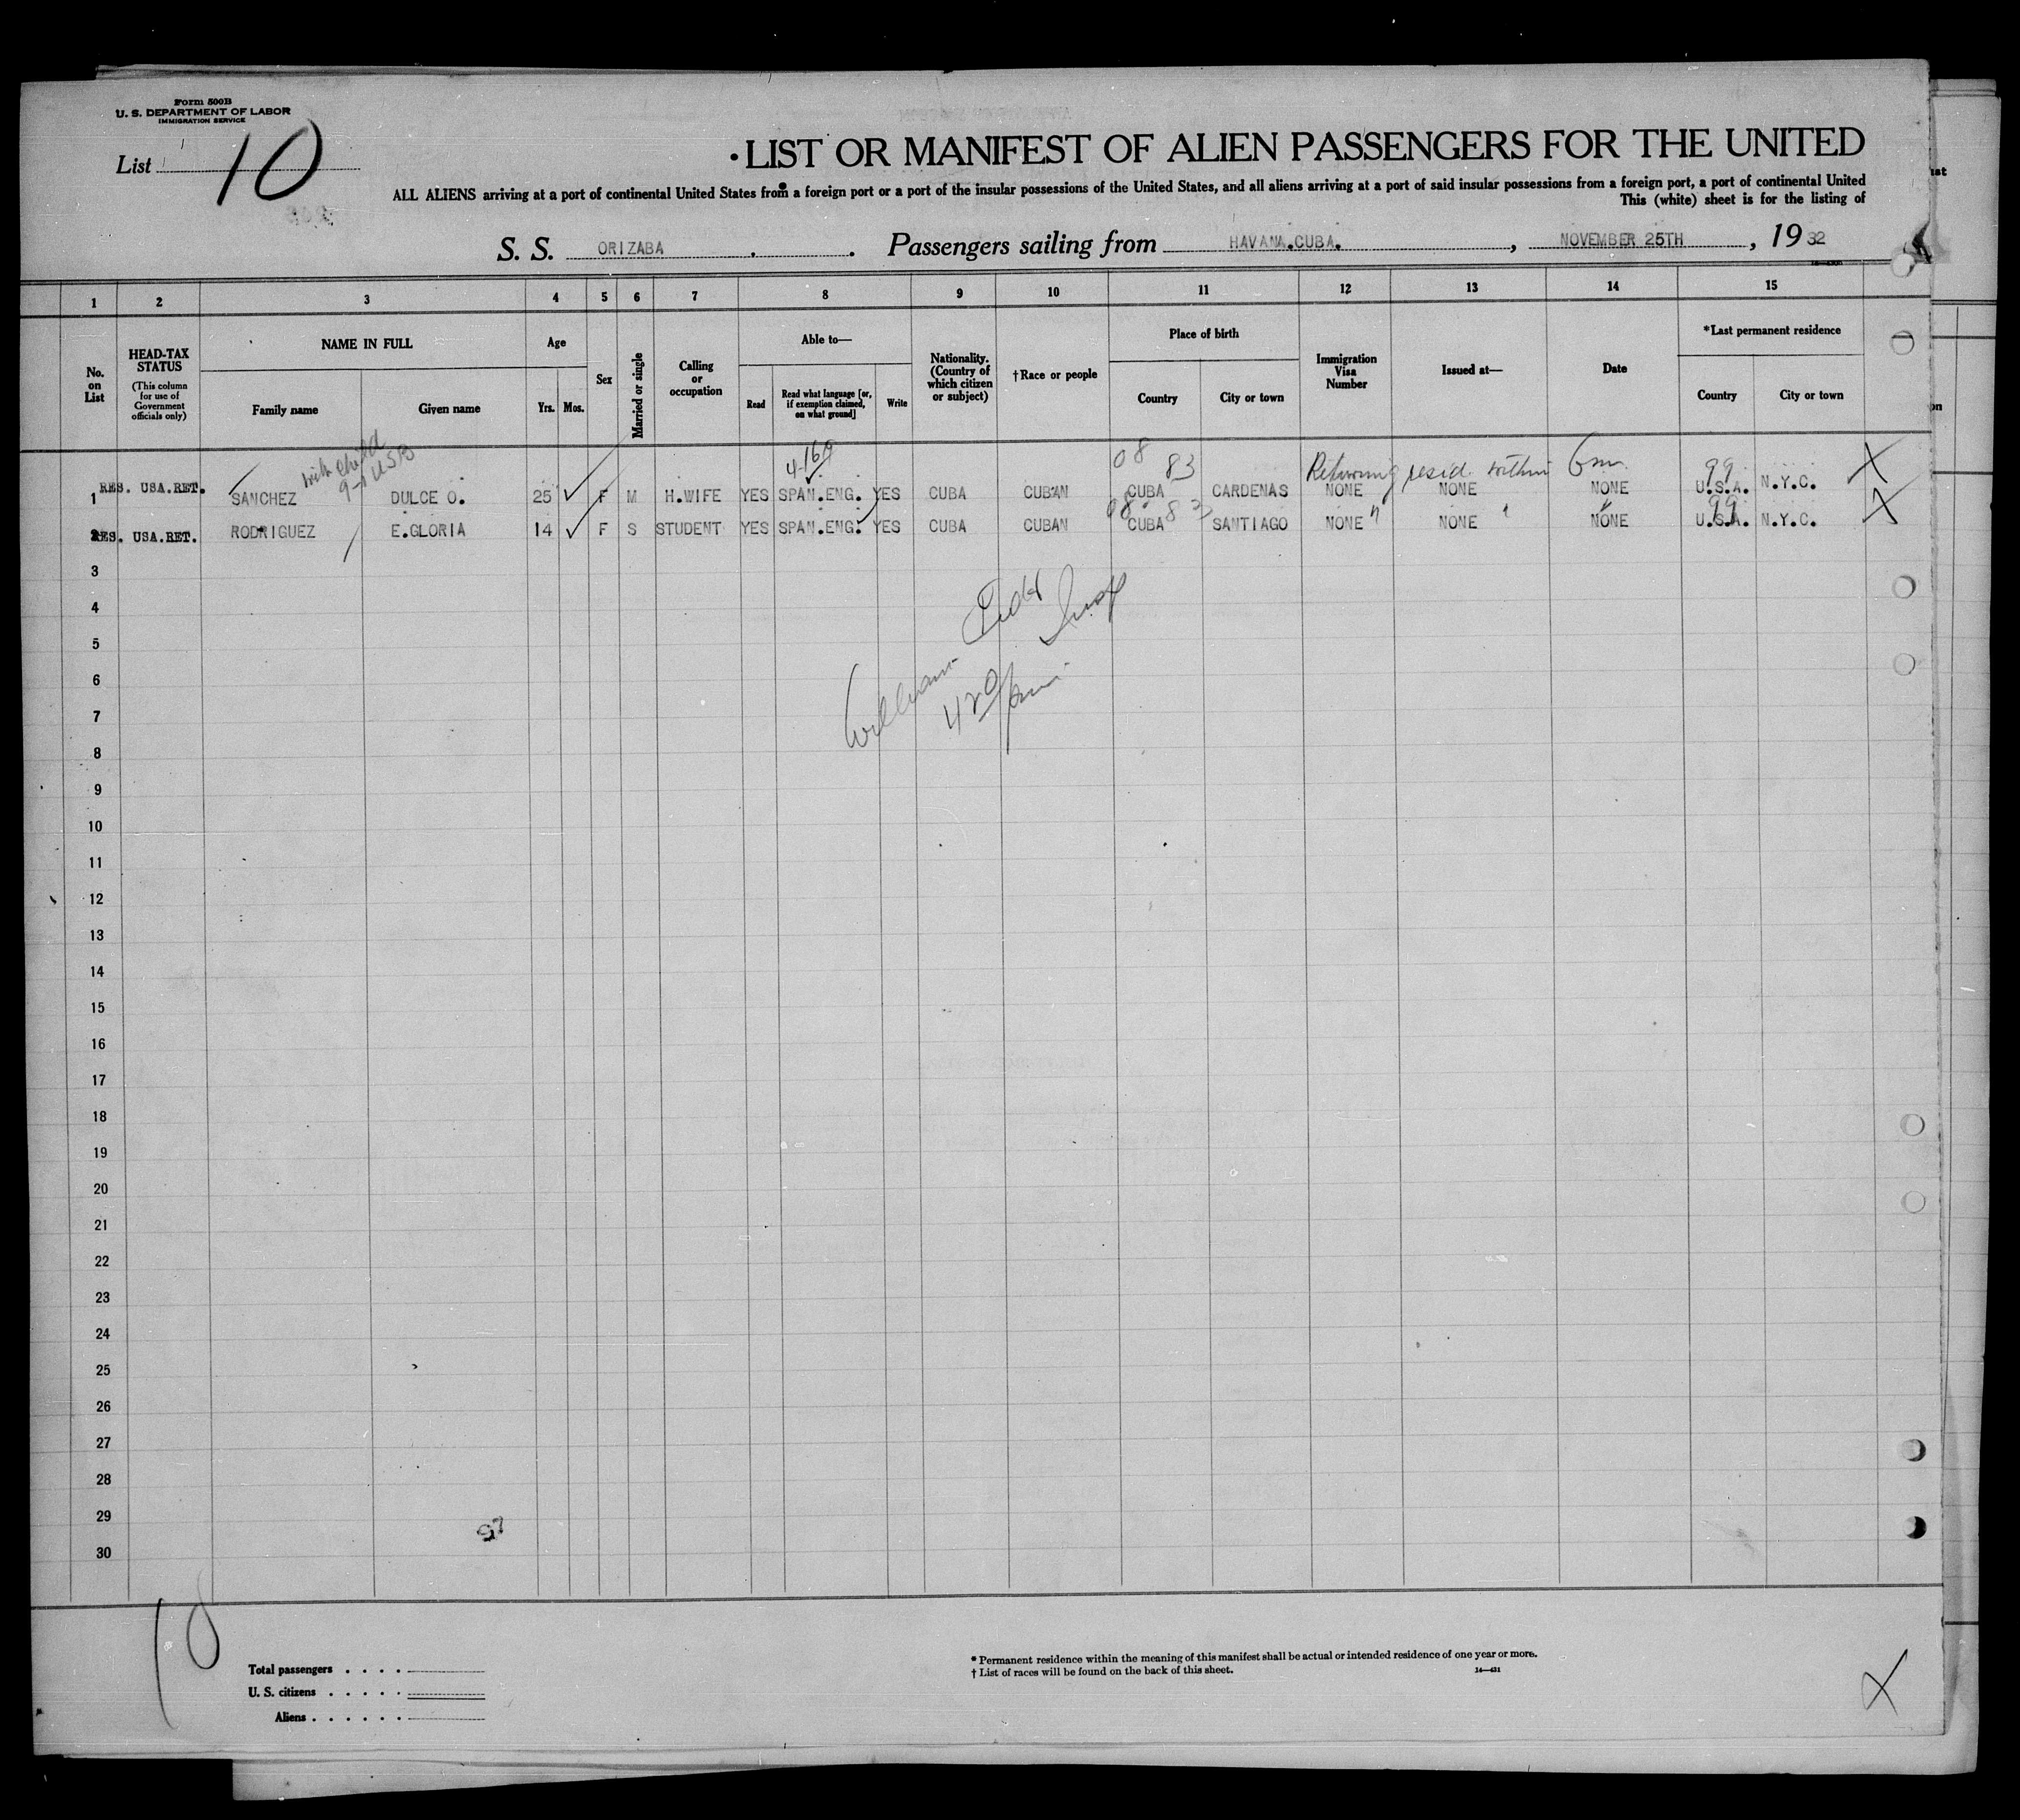 Form 500B
U. S. DEPARTMENT OF LABOR
IMMIGRATION SERVICE
List 10
LIST OR MANIFEST OF ALIEN PASSENGERS FOR THE UNITED
ALL ALIENS arriving at a port of continental United States from a foreign port or a port of the insular possessions of the United States, and all aliens arriving at a port of said insular possessions from a foreign port, a port of continental United
This (white) sheet is for the listing of
S. S. ORIZABA . . Passengers sailing from HAVANA.CUBA. , NOVEMBER 25TH , 19 32
1 2 3 4 5 6 7 8 9 10 11 12 13 14 15
No. on List
HEAD-TAX STATUS
(This column for use of Government officials only)
NAME IN FULL
Family name Given name
Age
Yrs. Mos.
Sex
Married or single
Calling or occupation
Able to—
Read
Read what language [or, if exemption claimed, on what ground]
Write
Nationality. (Country of which citizen or subject)
†Race or people
Place of birth
Country City or town
Immigration Visa Number
Issued at—
Date
*Last permanent residence
Country City or town
with child
9-1 USB
4-169
08 83 Returning resid. within 6m. 99
1 RES. USA.RET. SANCHEZ DULCE O. 25 F M H.WIFE YES SPAN.ENG. YES CUBA CUBAN CUBA CARDENAS NONE NONE NONE U.S.A. N.Y.C. X
08 83 99
2 RES. USA.RET. RODRIGUEZ E.GLORIA 14 F S STUDENT YES SPAN.ENG. YES CUBA CUBAN CUBA SANTIAGO NONE " NONE " NONE " U.S.A. N.Y.C. X
3
4
5
6
William
420
7
8
9
10
11
12
13
14
15
16
17
18
19
20
21
22
23
24
25
26
27
28
29
97
30
10
Total passengers . . . .
U. S. citizens . . . . .
Aliens . . . . . .
* Permanent residence within the meaning of this manifest shall be actual or intended residence of one year or more.
† List of races will be found on the back of this sheet. 14—431
X